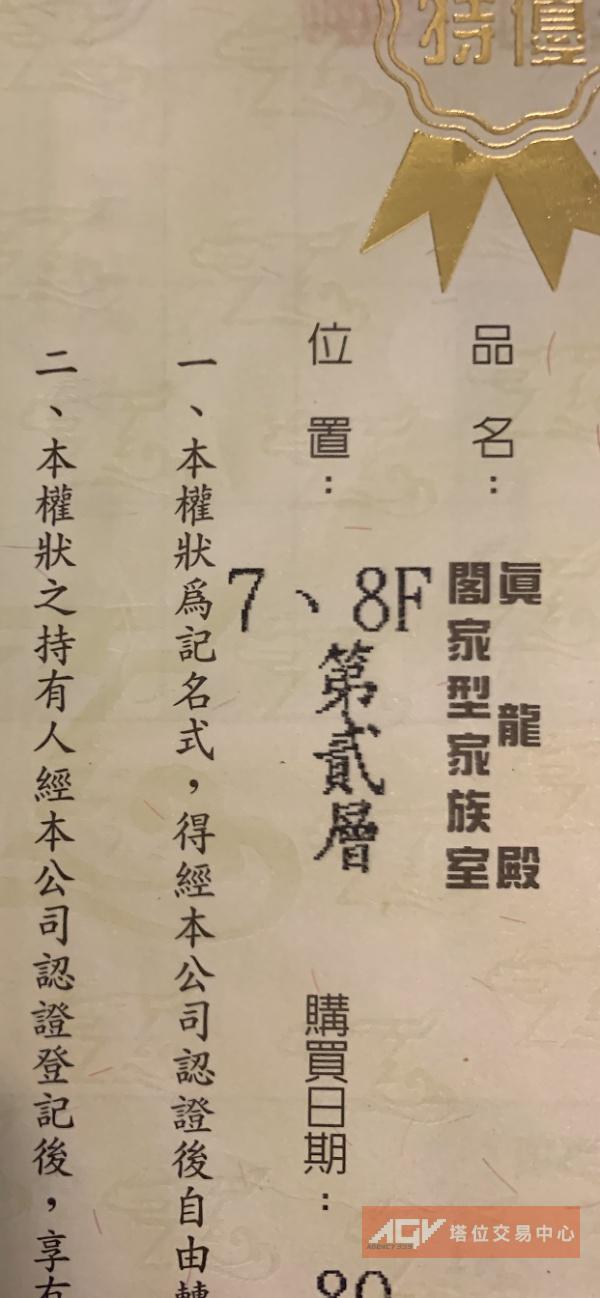 特優
品名：
眞龍殿
閣家型家族室
位置：
7、8F
第貳層
購買日期：
80
一、本權狀爲記名式，得經本公司認證後自由轉
二、本權狀之持有人經本公司認證登記後，享有
AGV 塔位交易中心
AGENCY333